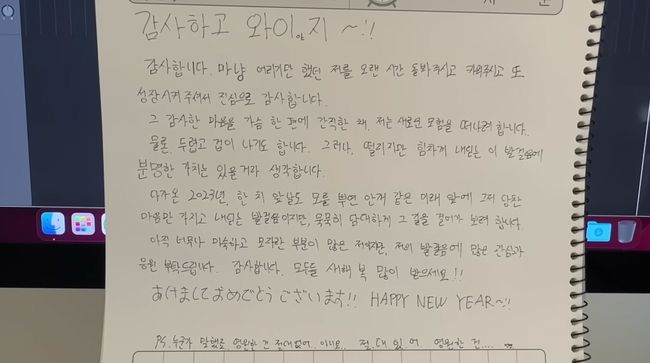 감사하고 와이앉지 ~!!
감사합니다. 마냥 어리기만 했던 저를 오랜 시간 돌봐주시고 키워주시고 또
성장시켜 주셔서 진심으로 감사합니다.
그 감사한 마음을 가슴 한 편에 간직한 채, 저는 새로운 모험을 떠나려 합니다.
물론, 두렵고 겁이 나기도 합니다. 그러나, 떨리지만 힘차게 내딛는 이 발걸음에
분명한 가치는 있을거라 생각합니다.
다가온 2023년, 한 치 앞날도 모를 뿌연 안개 같은 미래 앞에 그저 당찬
마음만 가지고 내딛는 발걸음이지만, 묵묵히 담대하게 그 길을 걸어가 보려 합니다.
아직 너무나 미숙하고 모자란 부분이 많은 저이지만, 저의 발걸음에 많은 관심과
응원 부탁드립니다. 감사합니다. 모두들 새해 복 많이 받으세요!!
あけましておめでとうございます!! HAPPY NEW YEAR~!!
P.S. 누군가 말했죠 영원한 건 절대없어. 아니요.. 절.대 있 어. 영원한 건....